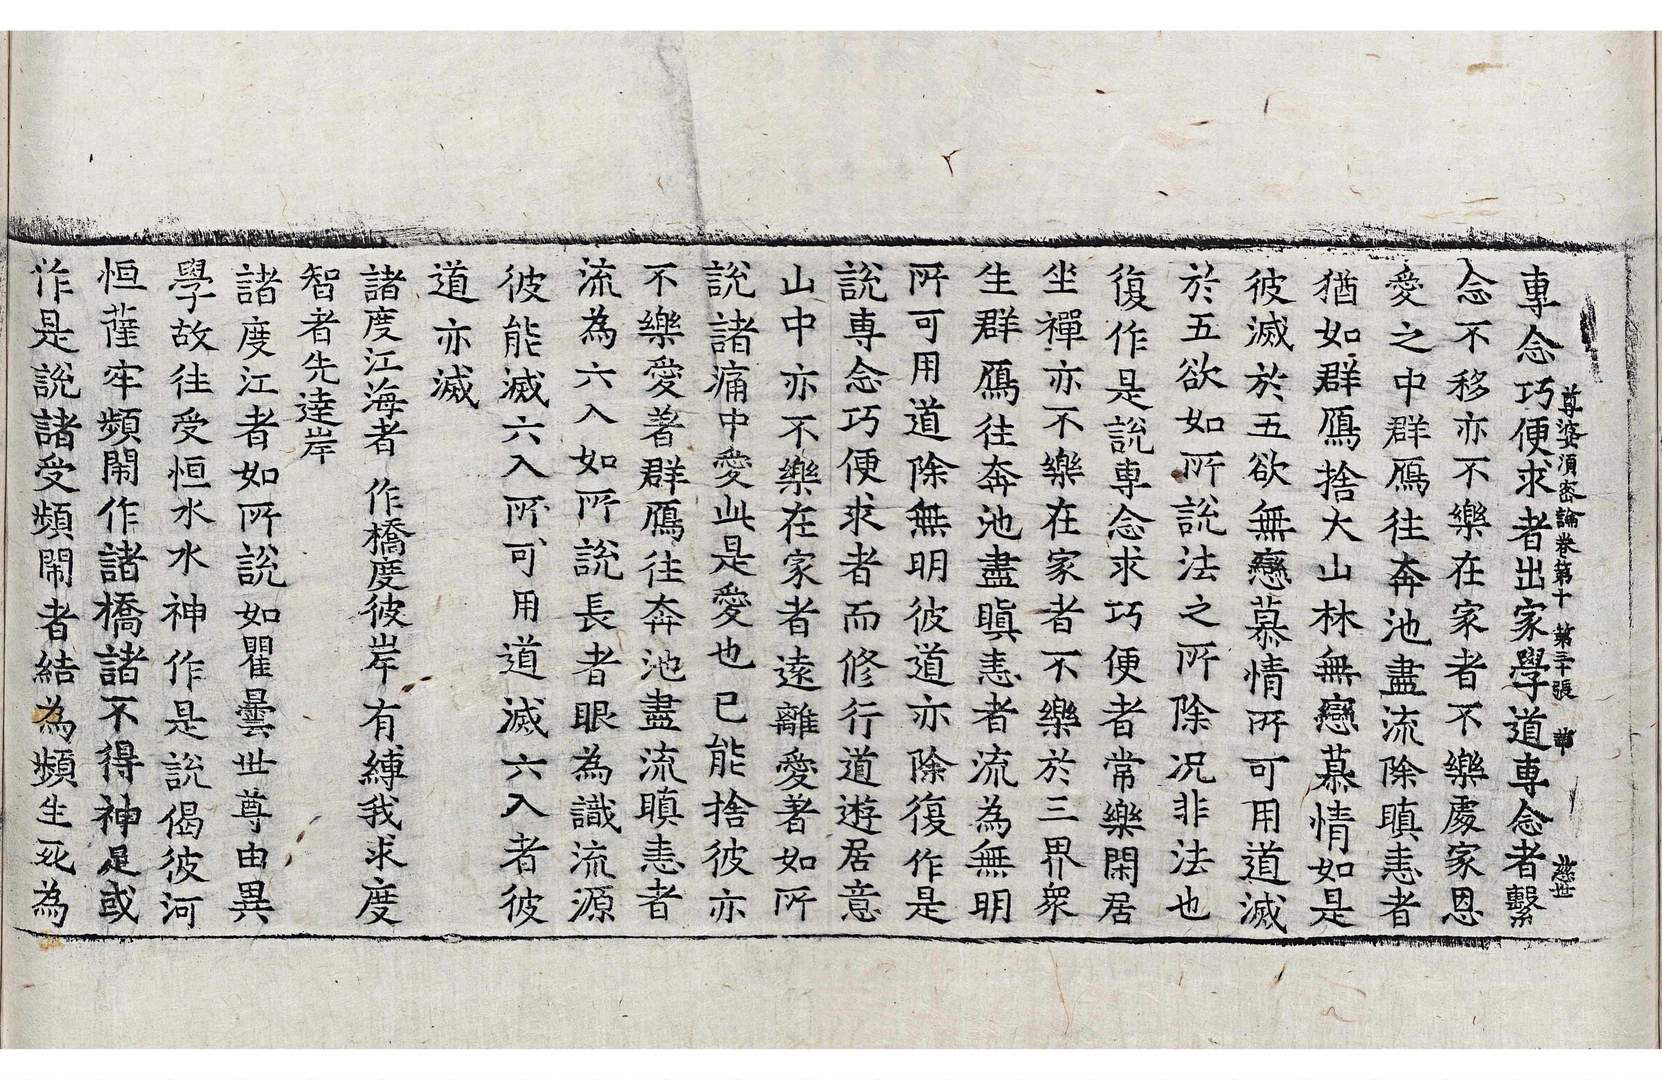 專念巧便求者出家學道專念者繫
尊婆須蜜論卷第十 第三十張
念不移亦不樂在家者不樂處家恩
愛之中群鴈往奔池盡流除瞋恚者
猶如群鴈捨大山林無戀慕情如是
彼滅於五欲無戀慕情所可用道滅
於五欲如所說法之所除况非法也
復作是說專念求巧便者常樂閑居
坐禪亦不樂在家者不樂於三界衆
生群鴈往奔池盡瞋恚者流為無明
所可用道除無明彼道亦除復作是
說專念巧便求者而修行道遊居意
山中亦不樂在家者遠離愛著如所
說諸痛中愛此是愛也已能捨彼亦
不樂愛著群鴈往奔池盡流瞋恚者
流為六入如所說長者眼為識流源
彼能滅六入所可用道滅六入者彼
道亦滅
諸度江海者 作橋度彼岸 有縛我求度
智者先達岸
諸度江者如所說如瞿曇世尊由異
學故往受恒水水神作是說偈彼河
恒薩牢頻閙作諸橋諸不得神足或
作是說諸受頻閙者結為頻生死為